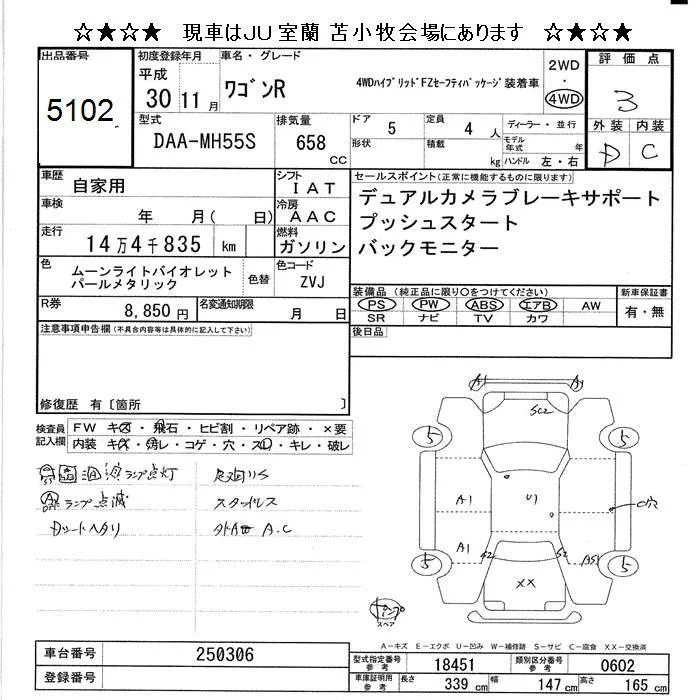 ☆★☆★ 現車はJU室蘭 苫小牧会場にあります ☆★☆★
出品番号
5102
初度登録年月
平成
30 11月
車名・グレード
ワゴンR
4WDハイブリッドFZセーフティパッケージ装着車
2WD
・
4WD
評価点
3
外装 内装
D C
型式
DAA-MH55S
排気量
658
CC
ドア
5
定員
4 人
ディーラー・並行
形状
積載
kg
モデル年式
年
ハンドル 左・右
車歴
自家用
シフト
IAT
車検
年 月( 日)
冷房
AAC
走行
14万4千835 km
燃料
ガソリン
色
ムーンライトバイオレット
パールメタリック
色替
色コード
ZVJ
R券
8,850円
名変通知期限
月 日
セールスポイント(正常に機能するものに限ります)
デュアルカメラブレーキサポート
プッシュスタート
バックモニター
装備品 (純正品に限り○をつけてください)
PS PW ABS エアB AW
SR ナビ TV カワ
新車保証書
有・無
後日品
注意事項申告欄(不具合内容等は具体的に記入して下さい)
修復歴 有〔箇所 〕
検査員
記入欄
FW キズ・飛石・ヒビ割・リペア跡・×要
内装 キズ・汚レ・コゲ・穴・スレ・キレ・破レ
ランプ点灯
ランプ点滅
スタッドレス
A.C
A1
A1
SC2
5
5
5
5
A1
A1
U1
S2
S2
A51
C穴
XX
スペア
A-キズ E-エクボ U-凹み W-補修跡 S-サビ C-腐食 XX-交換済
車台番号
250306
登録番号
型式指定番号
参考
18451
類別区分番号
参考
0602
車庫証明用
参考
長さ
339 cm
幅
147 cm
高さ
165 cm